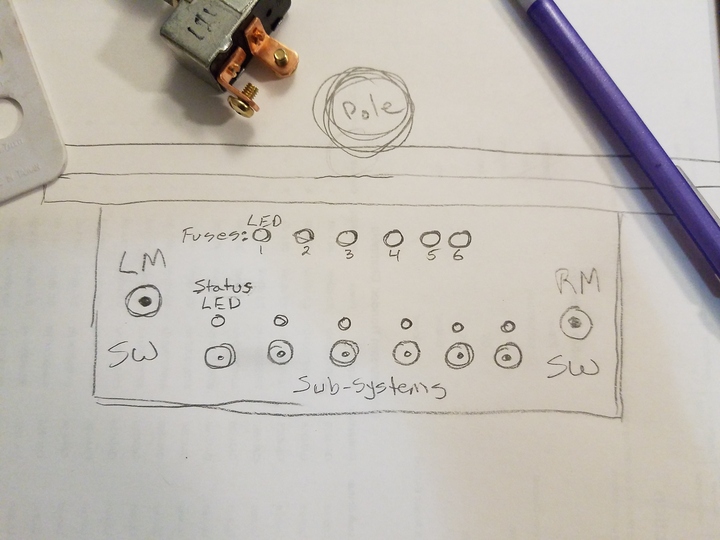 Pole
LED
Fuses:
1 2 3 4 5 6
LM
RM
Status
LED
SW
SW
Sub-systems